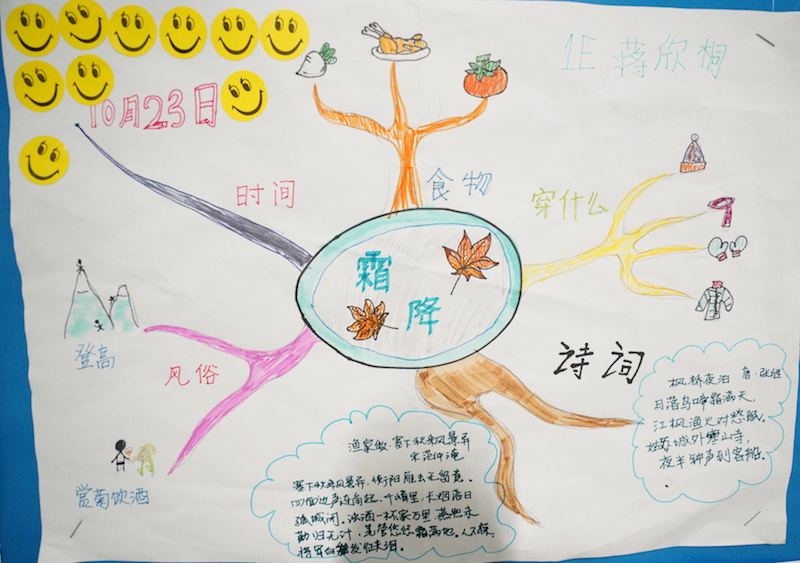 1E 蒋欣桐
10月23日
食物
时间
穿什么
霜
降
登高
风俗
诗词
枫桥夜泊 唐·张继
日落乌啼霜满天,
江枫渔火对愁眠。
姑苏城外寒山寺,
夜半钟声到客船。
渔家傲·塞下秋来风景异
宋 范仲淹
塞下秋来风景异,衡阳雁去无留意。
四面边声连角起,千嶂里,长烟落日
孤城闭。浊酒一杯家万里,燕然未
勒归无计,羌管悠悠霜满地。人不寐,
将军白发征夫泪。
赏菊饮酒